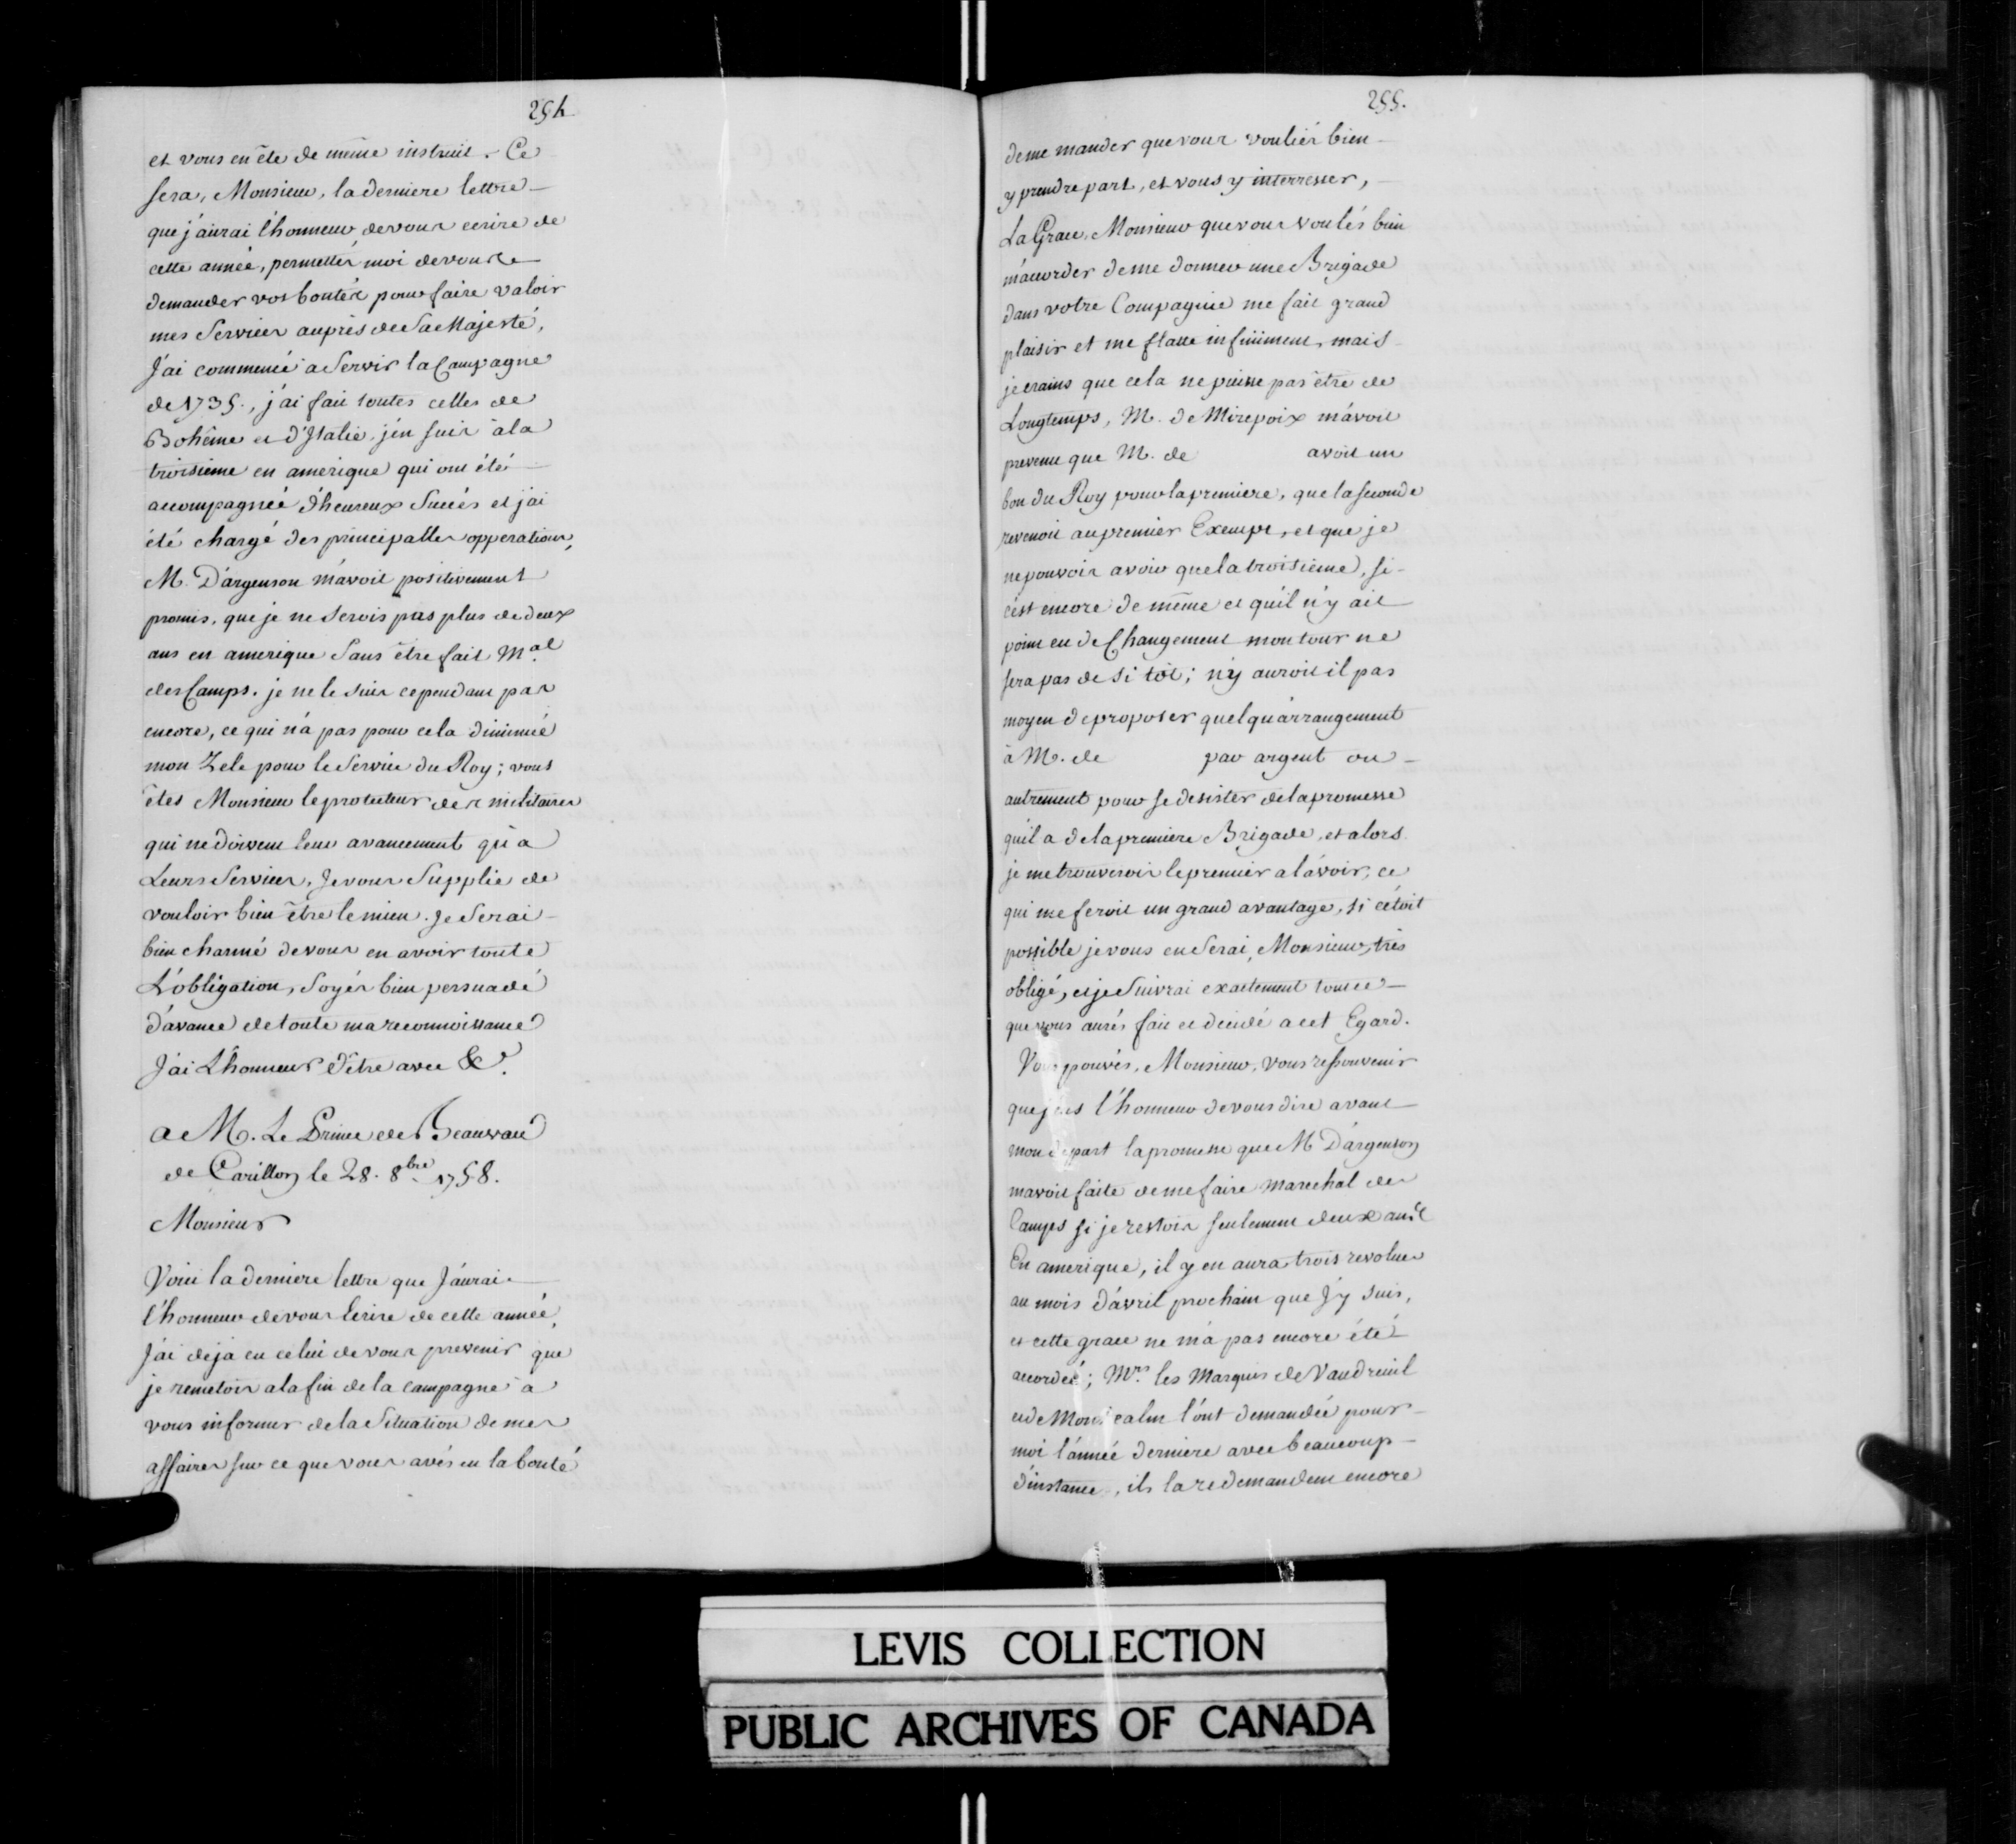 254
et vous en ête de même instruit. Ce
sera, Monsieur, la derniere lettre
que j'aurai l'honneur de vous ecrire de
cette année, permettés moi de vous
demander vos bontés pour faire valoir
mes Services auprès de Sa Majesté,
J'ai commencé a Servir la Campagne
de 1735., j'ai fait toutes celles de
Bohême et d'Italie, j'en suis à la
troisieme en amerique qui ont été
accompagnée d'heureux Succés et j'ai
été chargé des principalles opperations,
M. D'argenson m'avoit positivement
promis, que je ne serois pas plus de deux
ans en amerique Sans être fait Mal
des Camps. je ne le suis cependant pas
encore, ce qui n'a pas pour cela diminué
mon Zele pour le Service du Roy; vous
êtes Monsieur le protecteur des militaires
qui ne doivent leur avancement qu'a
Leurs Services, Je vous Supplie de
vouloir bien être le mien. Je Serai
bien charmé de vous en avoir toute
L'obligation, Soyés bien persuadé
d'avance de toute ma reconnoissance
J'ai L'honneur d'être avec &c.
a M. Le Prince de Beauvau
de Carillon le 28. 8bre 1758.
Monsieur
Voici la derniere lettre que J'aurai
l'honneur de vous Ecrire de cette année,
J'ai deja eu celui de vous prevenir que
je remetois a la fin de la campagne à
vous informer de la Situation de mes
affaires sur ce que vous avés eu la bonté
255.
de me mander que vous vouliés bien
y prendre part, et vous y interresser,
La Grace, Monsieur que vous voulés bien
m'accorder de me donner une Brigade
dans votre Compagnie me fait grand
plaisir et me flatte infiniment, mais
je crains que cela ne puisse pas être de
Longtemps, M. de Mirepoix m'avoit
prevenu que M. de avoit un
bon du Roy pour la premiere, que la seconde
revenoit au premier Exempt, et que je
ne pouvois avoir que la troisieme, si
c'est encore de même et qu'il n'y ait
point eu de Changement mon tour ne
sera pas de si tôt; n'y auroit il pas
moyen de proposer quelqu'arrangement
à M. de par argent ou
autrement pour se desister de la promesse
qu'il a de la premiere Brigade, et alors
je me trouverois le premier a l'avoir, ce
qui me feroit un grand avantage, si c'étoit
possible je vous en Serai, Monsieur, très
obligé, et je Suivrai exactement tout ce
que vous aurés fait et decidé a cet Egard.
Vous pouvés, Monsieur, vous ressouvenir
que j'eus l'honneur de vous dire avant
mon depart la promesse que M D'argenson
m'avoit faite de me faire marechal des
Camps si je restois seulement deux ans
En amerique, il y en aura trois revolues
au mois d'avril prochain que J'y suis,
et cette grace ne m'a pas encore été
accordée; Mrs. les Marquis de Vaudreuil
et de Montcalm l'ont demandée pour
moi l'année derniere avec beaucoup
d'instance, ils la redemandent encore
LEVIS COLLECTION
PUBLIC ARCHIVES OF CANADA